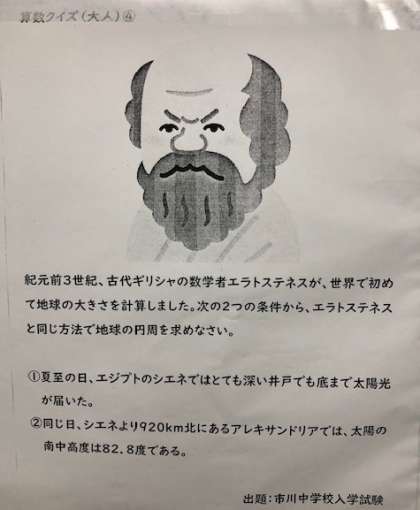 算数クイズ(大人)④
紀元前3世紀、古代ギリシャの数学者エラトステネスが、世界で初め
て地球の大きさを計算しました。次の2つの条件から、エラトステネス
と同じ方法で地球の円周を求めなさい。
①夏至の日、エジプトのシエネではとても深い井戸でも底まで太陽光
が届いた。
②同じ日、シエネより920km北にあるアレキサンドリアでは、太陽の
南中高度は82.8度である。
出題:市川中学校入学試験